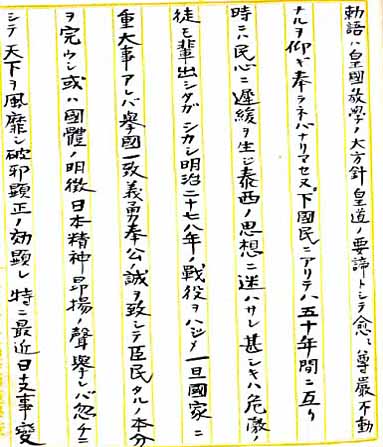 勅語ハ皇国教學ノ大方針皇道ノ要諦トシテ愈〻尊厳不動
ナルヲ仰ギ奉ラネバナリマセヌ下國民ニアリテハ五十年間ニ亙リ
時ニハ民心ニ遅緩ヲ生ジ泰西ノ思想ニ迷ハサレ甚シキハ危激ノ
徒モ輩出シタガシカシ明治二十七八年ノ戦役ヲハジメ一旦国家ニ
重大事アレバ擧國一致義勇奉公誠ヲ致シテ臣民タルノ本分
ヲ完ウシ或ハ國體ノ明徴日本精神昂揚ノ聲擧レバ忽チニ
シテ天下ヲ風靡シ破邪顕正ノ効顕レ特ニ最近日支事変